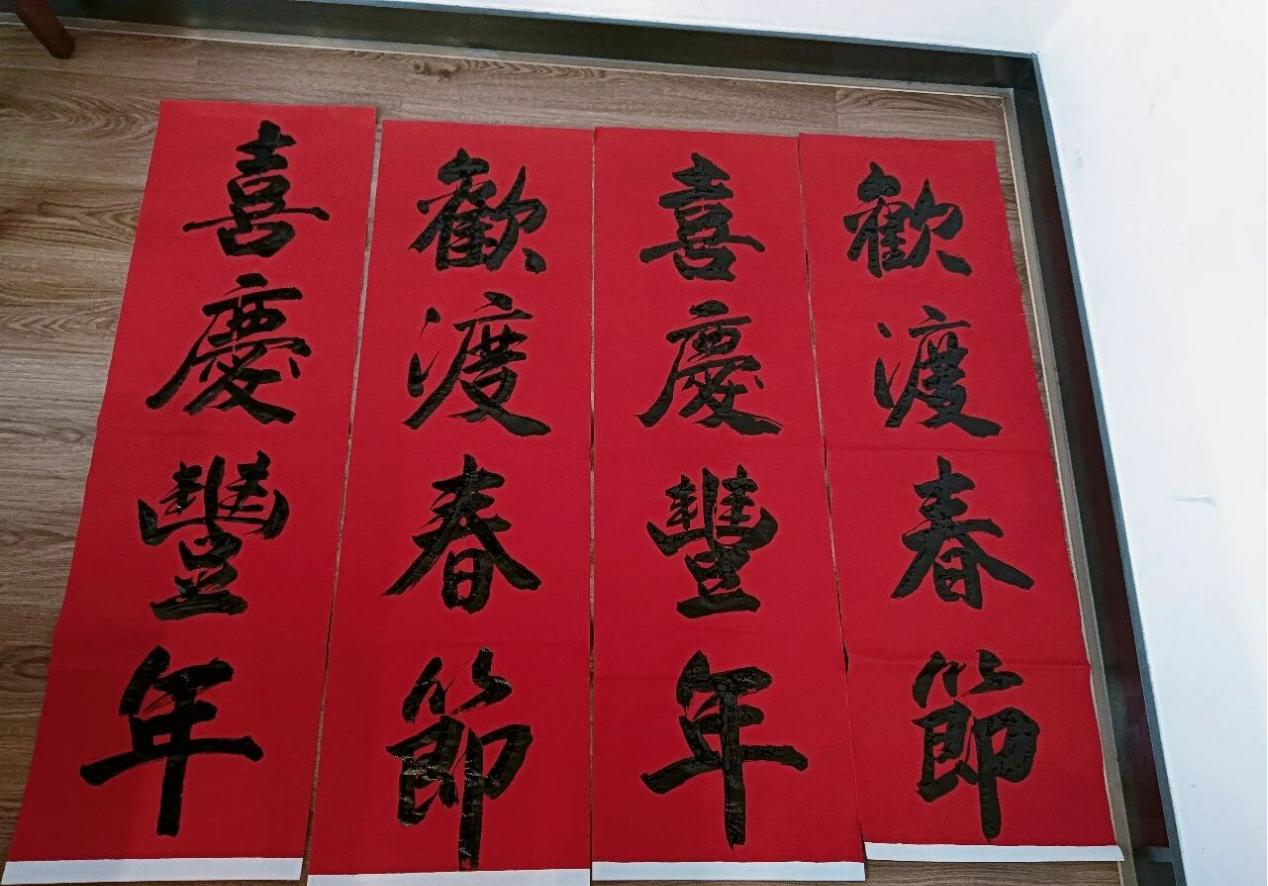 歡渡春節
喜慶豐年
歡渡春節
喜慶豐年